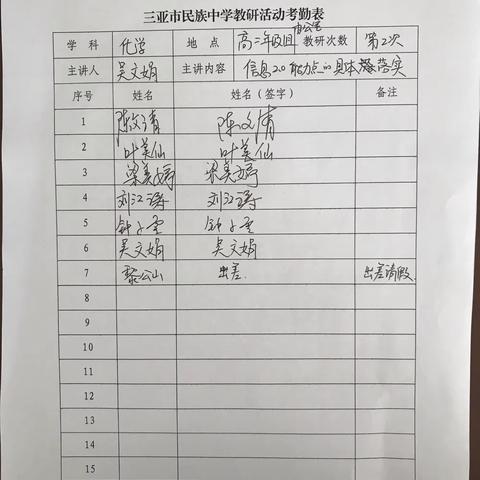 三亚市民族中学教研活动考勤表
学 科 化学 地 点 高二年级组办公室 教研次数 第2次
主讲人 吴文娟 主讲内容 信息2.0 能力点的具体落实
序号 姓名 姓名(签字) 备注
1 陈文清 陈文清
2 叶美仙 叶美仙
3 梁美婷 梁美婷
4 刘江涛 刘江涛
5
6 吴文娟 吴文娟
7 黎公山 出差. 出差请假.
8
9
10
11
12
13
14
15